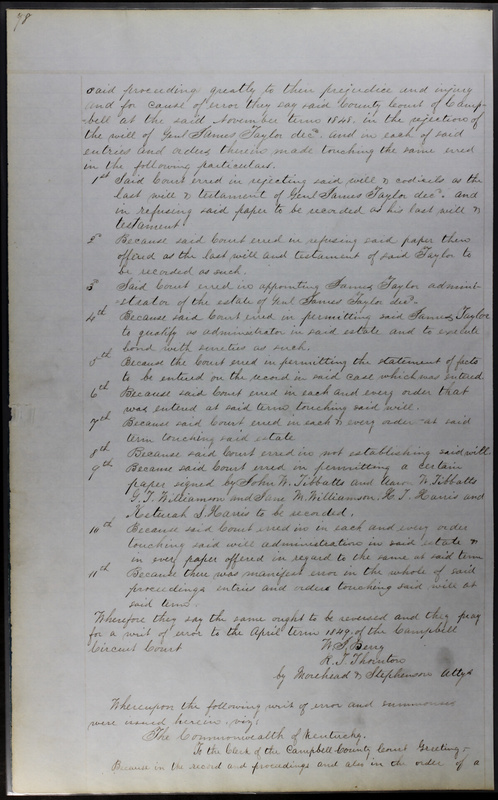 78
said proceeding greatly to their prejudice and injury
and for cause of error they say said County Court of Camp-
-bell at the said November term 1848. in the rejection of
the will of Genl James Taylor decd. and in each of said
entries and orders therein made touching the same erred
in the following particulars.
1st Said Court erred in rejecting said will & codicils as the
last will & testament of Genl James Taylor decd. and
in refusing said paper to be recorded as his last will &
testament.
2d Because said Court erred in refusing said paper then
offered as the last will and testament of said Taylor to
be recorded as such.
3d Said Court erred in appointing James Taylor adminis-
-trator of the estate of Genl James Taylor decd.
4th Because said Court erred in permitting said James Taylor
to qualify as administrator in said estate and to execute
bond with sureties as such.
5th Because the Court erred in permitting the statement of facts
to be entered on the record in said case which was entered
6th Because said Court erred in each and every order that
was entered at said term touching said will.
7th Because said Court erred in each & every order at said
term touching said estate
8th Because said Court erred in not establishing said will
9th Because said Court erred in permitting a certain
paper signed by John W. Tibbatts and Ann W. Tibbatts
G. T. Williamson and Jane M. Williamson. H. T. Harris and
Keturah L. Harris to be recorded.
10th Because said Court erred in each and every order
touching said will administration in said estate &
in every paper offered in regard to the same at said term
11th Because there was manifest error in the whole of said
proceedings entries and orders touching said will at
said term.
Wherefore they say the same ought to be reversed and they pray
for a writ of error to the April term 1849. of the Campbell
Circuit Court
W. S. Berry
R. T. Thornton
by Morehead & Stephenson Attys
Whereupon the following writ of error and summonses
were issued herein. viz:
The Commonwealth of Kentucky.
To the Clerk of the Campbell County Court Greeting
Because in the record and proceedings and also in the order of a